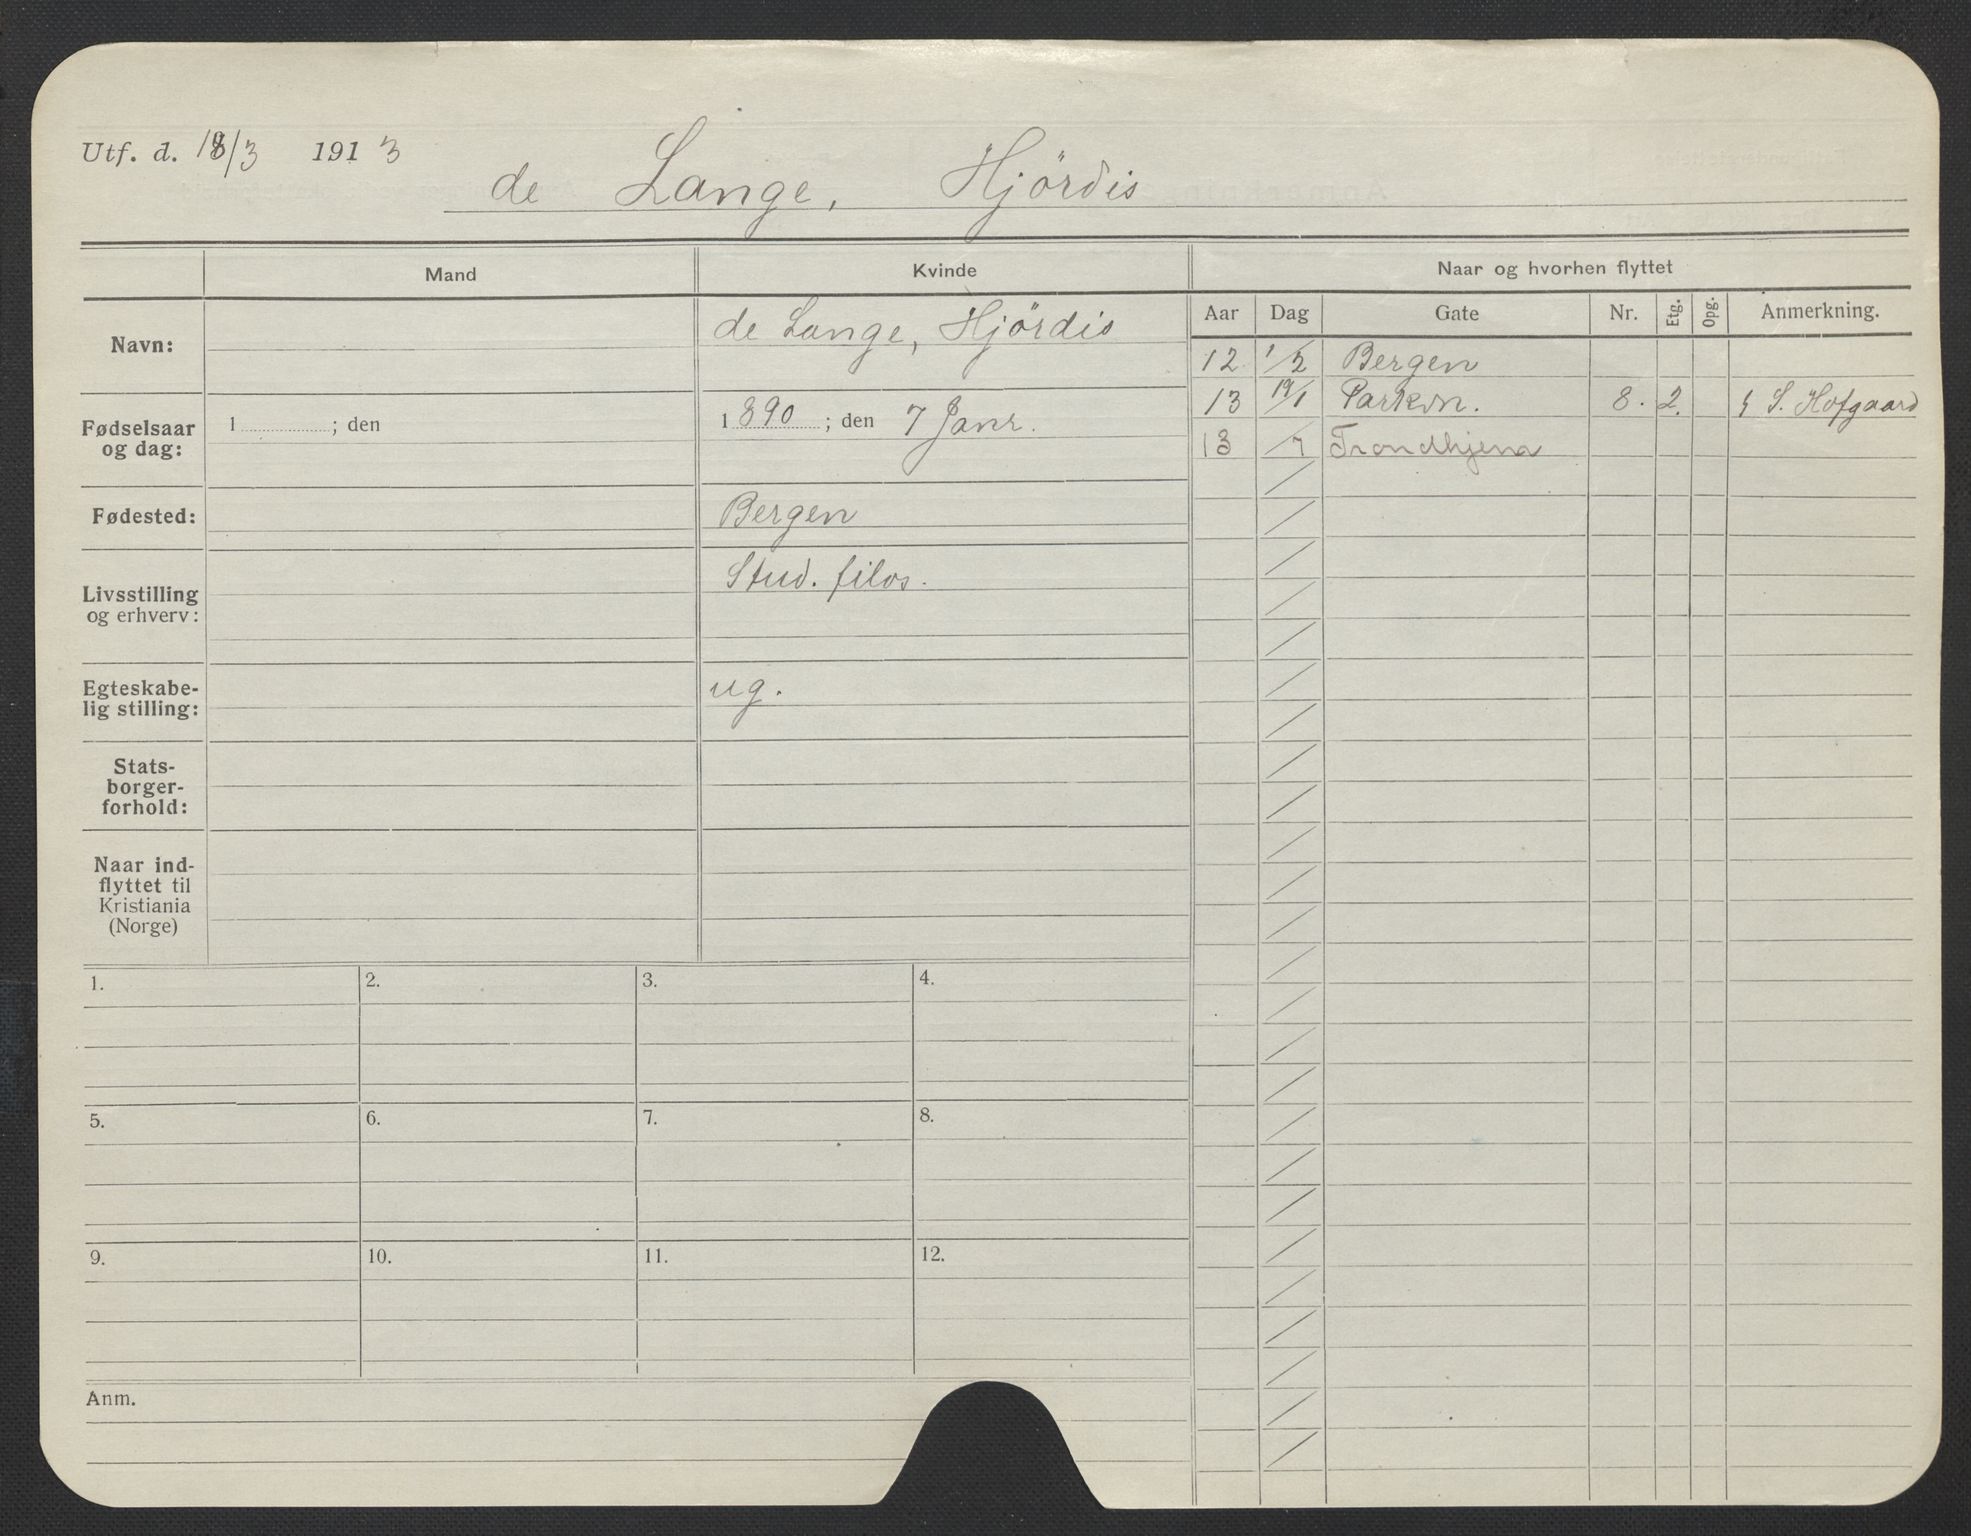 Utf. d. 18/3 1913
de Lange, Hjördis
Mand
Kvinde
Naar og hvorhen flyttet
Aar Dag Gate Nr. Etg. Opg. Anmerkning.
Navn:
de Lange, Hjördis
12 1/2 Bergen
13 19/1 Parkvn. 8. 2. S. Hofgaard
13 /7 Trondhjem
Fødselsaar
og dag:
1 ; den
1890 ; den 7 Janr.
Fødested:
Bergen
Livsstilling
og erhverv:
Stud. filos.
Egteskabe-
lig stilling:
ug.
Stats-
borger-
forhold:
Naar ind-
flyttet til
Kristiania
(Norge)
1. 2. 3. 4.
5. 6. 7. 8.
9. 10. 11. 12.
Anm.